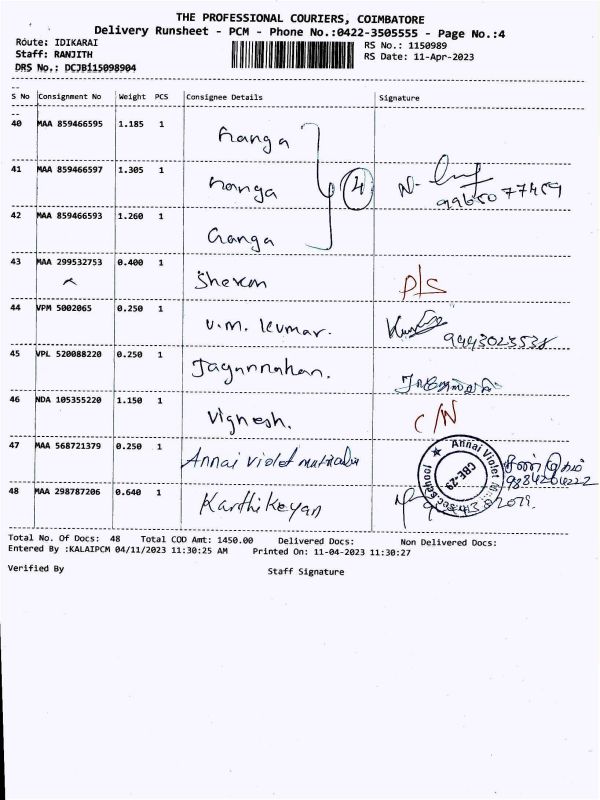 THE PROFESSIONAL COURIERS, COIMBATORE
Delivery Runsheet - PCM - Phone No.:0422-3505555 - Page No.:4
Route: IDIKARAI
RS No.: 1150989
Staff: RANJITH
RS Date: 11-Apr-2023
DRS No.: DCJB115098904
S No Consignment No Weight PCS Consignee Details Signature
40 MAA 859466595 1.185 1 Ganga
41 MAA 859466597 1.305 1 Ganga 4
42 MAA 859466593 1.260 1 Ganga
43 MAA 299532753 0.400 1 D/S
44 VPM 5002065 0.250 1 U.M. Kumar. 9443023538
45 VPL 520088220 0.250 1
46 NDA 105355220 1.150 1 Vignesh. C/N
47 MAA 568721379 0.250 1 Annai Violet
Annai Violet
School
CBE-29
48 MAA 298787206 0.640 1 Karthikeyan
Total No. Of Docs: 48 Total COD Amt: 1450.00 Delivered Docs: Non Delivered Docs:
Entered By :KALAIPCM 04/11/2023 11:30:25 AM Printed On: 11-04-2023 11:30:27
Verified By Staff Signature